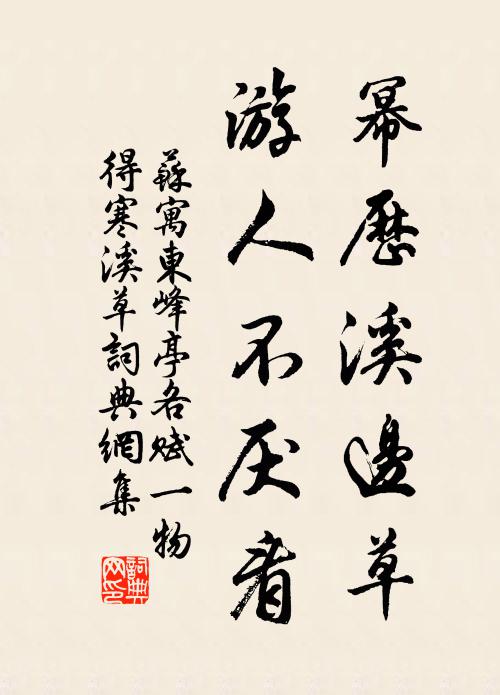 幂歷溪邊草
游人不厌看
蘇寓東峰亭各賦一物
得寒溪草詞典網集
詞典网印